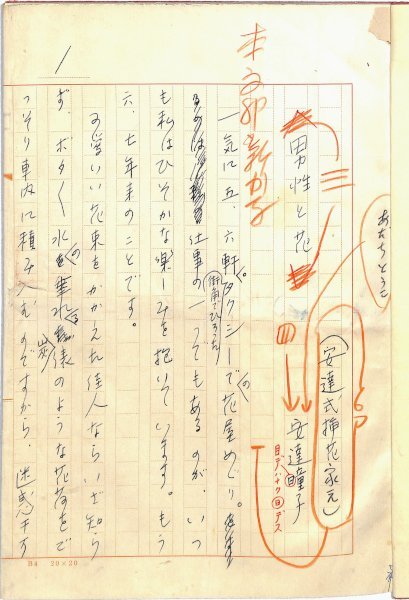 あだちとうこ
(安達式挿花家元)
安達曈子
目デハナク日デス
四
男性と花
一気に五、六軒。街角でひろったタクシーでの花屋めぐり。
仕事の一つでもあるのが、いつ
も私はひそかな楽しみを抱いています。もう
六、七年来のことです。
可愛いい花束をかかえた佳人ならいざ知ら
ず、ボタ〱水の垂れる炭俵のような花荷をご
っそり車内に積みこむのですから、迷惑そう
1
B4 20×20